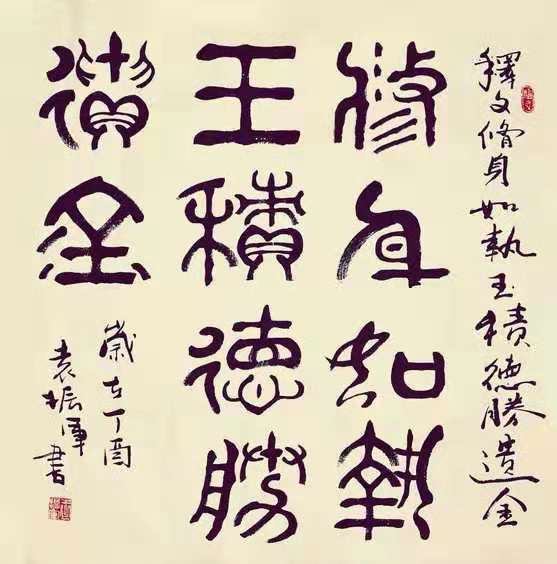 釋文脩身如執玉積德勝遺金
修身如執
玉積德勝
遺金
歲在丁酉
袁振軍書